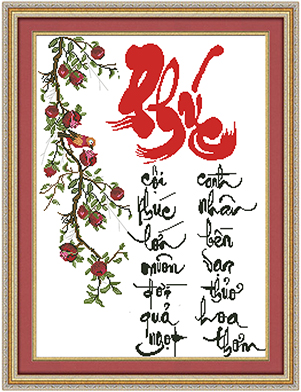 Phúc
cội phúc lớn muôn đời quả ngọt
cành nhân bền vạn thuở hoa thơm